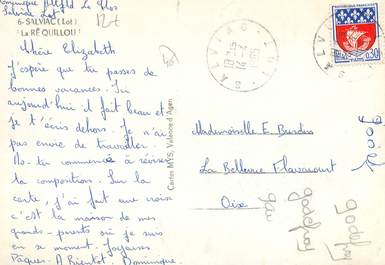 Dominique
Salviac Lot
6 - SALVIAC (Lot)
"La REQUILLOU"
Chère Elizabeth
j'espère que tu passes de
bonnes vacances. Ici
aujourd'hui il fait beau et
je t'écris dehors. Je n'ai
pas envie de travailler.
As-tu commencé à réviser
la composition. Sur la
carte, j'ai fait une croix
c'est la maison de mes
grands-parents où je suis
en ce moment. Joyeuses
Pâques. A Bientôt. Dominique
Cartes MYS, Valence d'Agen
SALVIAC LOT
REPUBLIQUE FRANÇAISE
0,30
PARIS
Mademoiselle E.
La Bellevue Flavacourt
Oise
godefroy
godefroy